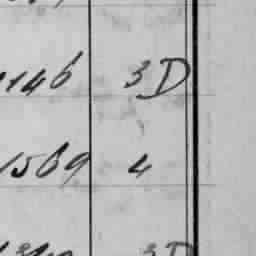 146 3D
1569 4
3D